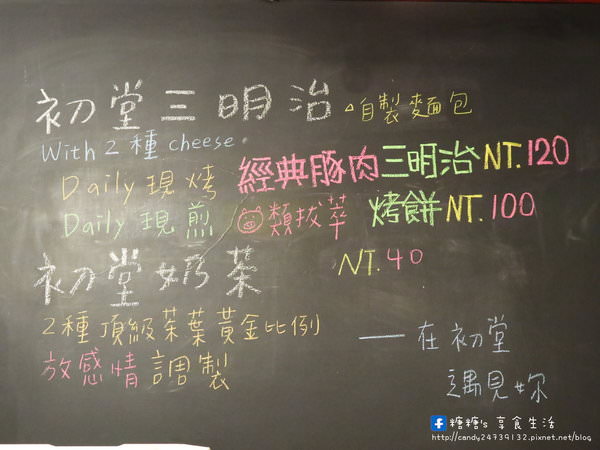 初堂三明治 自製麵包
With 2種 cheese.
Daily 現烤 經典豚肉三明治 NT.120
Daily 現煎 類拔萃 烤餅 NT.100
初堂奶茶 NT.40
2種頂級茶葉黃金比例
放感情調製
——在初堂
遇見妳
糖糖's 享食生活
http://candy24739132.pixnet.net/blog